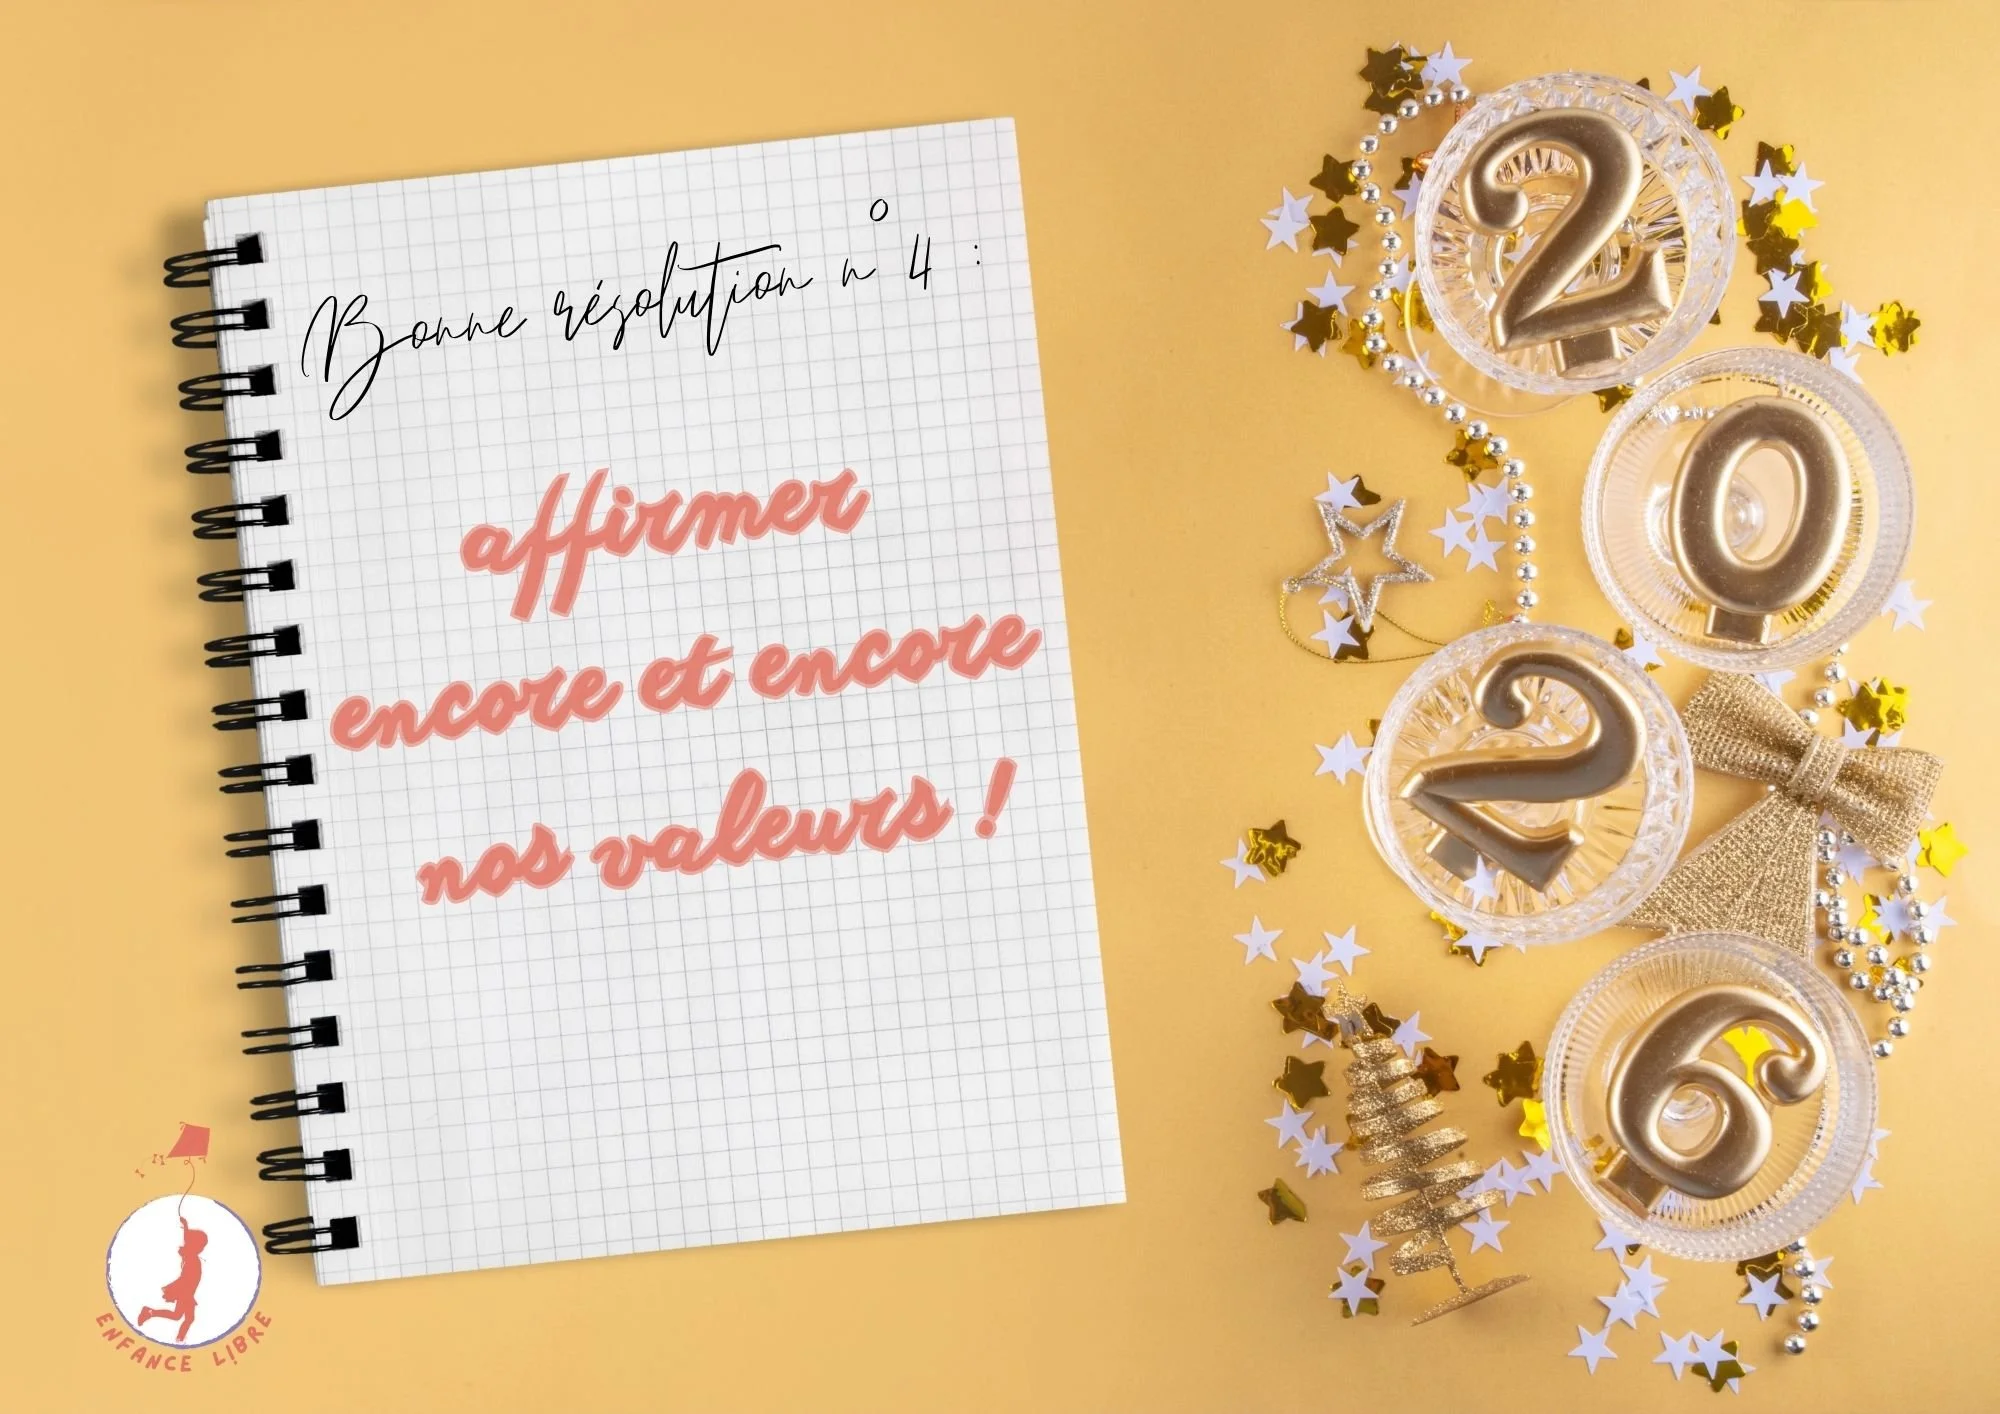 Bonne résolution n° 4 :
affirmer
encore et encore
nos valeurs !
2
0
2
6
ENFANCE LIBRE